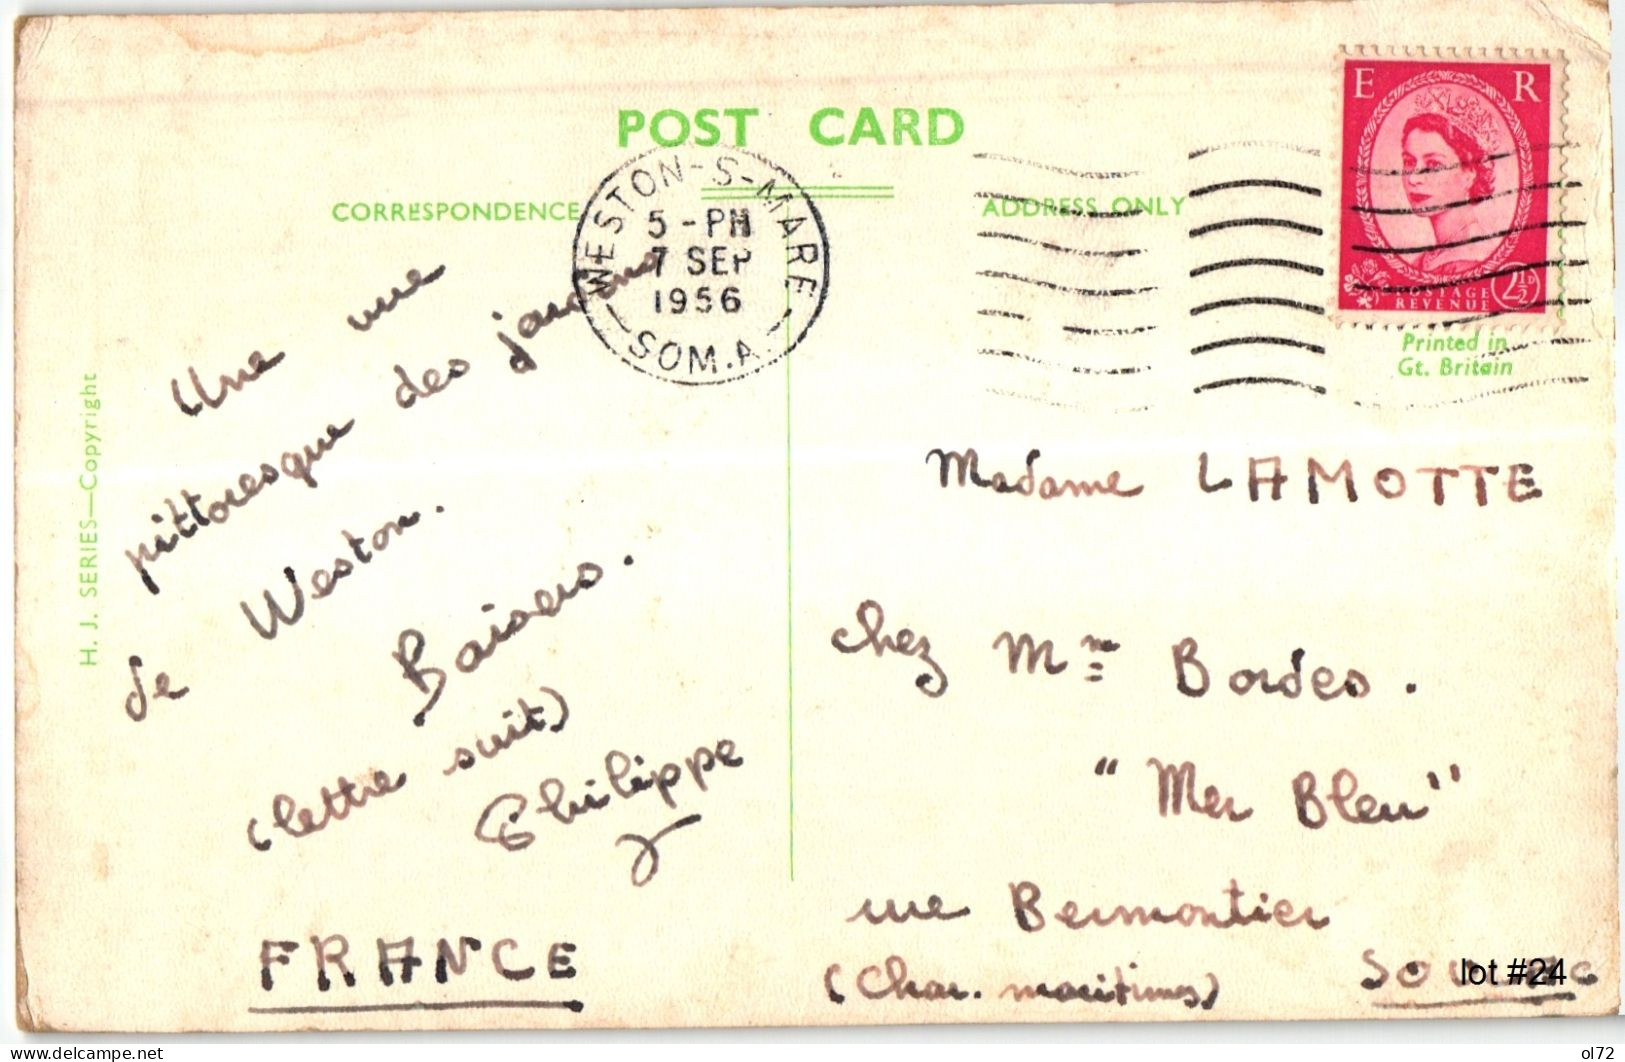 POST CARD
CORRESPONDENCE
ADDRESS ONLY
WESTON-S-MARE
5 - PM
7 SEP
1956
SOM.A
E R
POSTAGE
REVENUE
2½D
Printed in
Gt. Britain
H. J. SERIES—Copyright
Une vue
pittoresque des jardins
de Weston.
Baisers.
(lettre suit)
Philippe
FRANCE
Madame LAMOTTE
chez Mme Bordes.
"Mer Bleu"
rue Bermontier
(Char. maritimes)
SOULAC
lot #24
https://www.delcampe.net
ol72